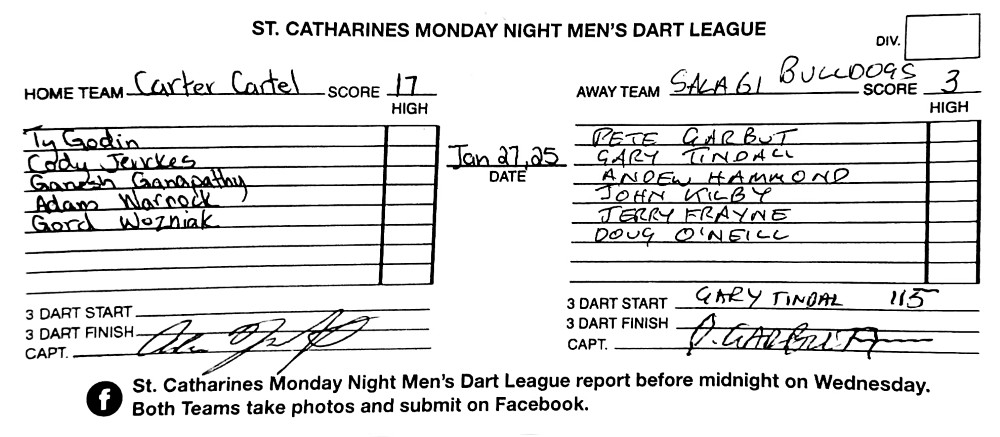 ST. CATHARINES MONDAY NIGHT MEN'S DART LEAGUE
DIV.
HOME TEAM Carter Cartel SCORE 17
HIGH
AWAY TEAM SALAGI BULLDOGS SCORE 3
HIGH
Ty Godin
Cody Jerrkes
Ganesh Ganapathy
Adam Warnock
Gord Wozniak
Jan 27, 25
DATE
PETE GARBUT
GARY TINDALL
ANDEW HAMMOND
JOHN KILBY
JERRY FRAYNE
DOUG O'NEILL
3 DART START
3 DART FINISH
CAPT.
3 DART START GARY TINDAL 115
3 DART FINISH
CAPT. P. GARBUTT
St. Catharines Monday Night Men's Dart League report before midnight on Wednesday.
Both Teams take photos and submit on Facebook.